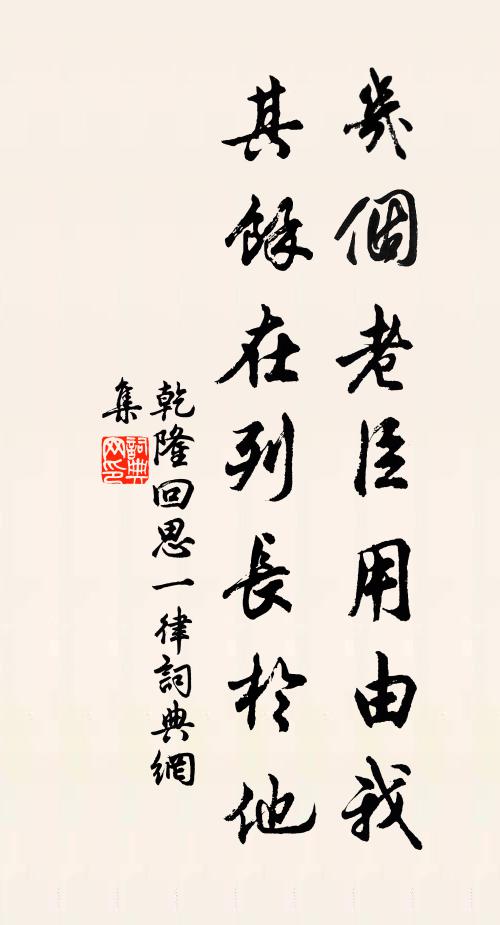 幾個老臣用由我
其餘在列長於他
乾隆回思一律詞典網
集
詞典
网印